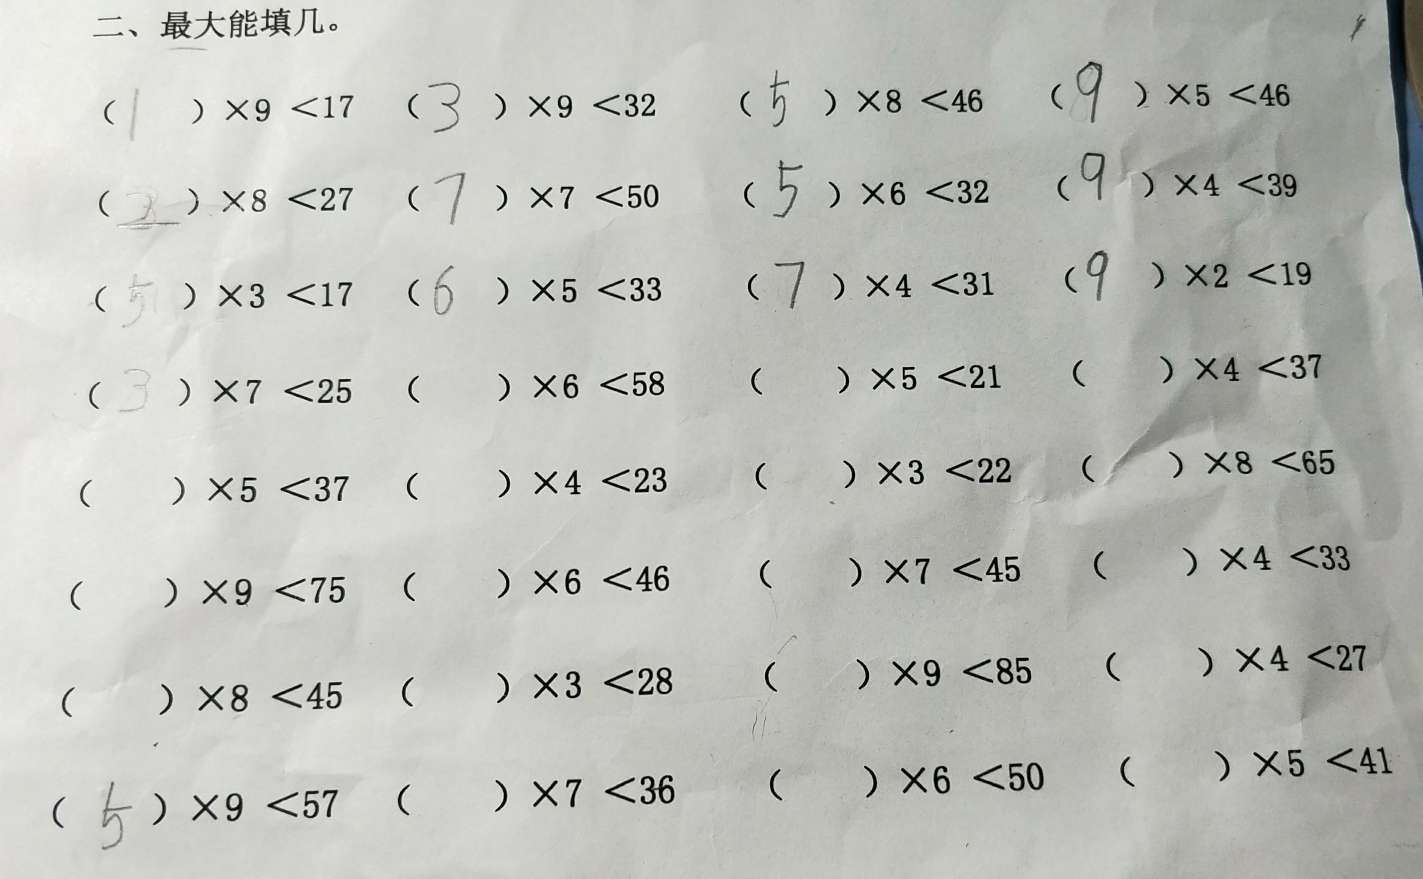 二、最大能填几。
( 1 )×9 <17 ( 3 )×9 <32 ( 5 )×8 <46 ( 9 )×5 <46
( 3 )×8 <27 ( 7 )×7 <50 ( 5 )×6 <32 ( 9 )×4 <39
( 5 )×3 <17 ( 6 )×5 <33 ( 7 )×4 <31 ( 9 )×2 <19
( 3 )×7 <25 (   )×6 <58 (   )×5 <21 (   )×4 <37
(   )×5 <37 (   )×4 <23 (   )×3 <22 (   )×8 <65
(   )×9 <75 (   )×6 <46 (   )×7 <45 (   )×4 <33
(   )×8 <45 (   )×3 <28 (   )×9 <85 (   )×4 <27
( 5 )×9 <57 (   )×7 <36 (   )×6 <50 (   )×5 <41